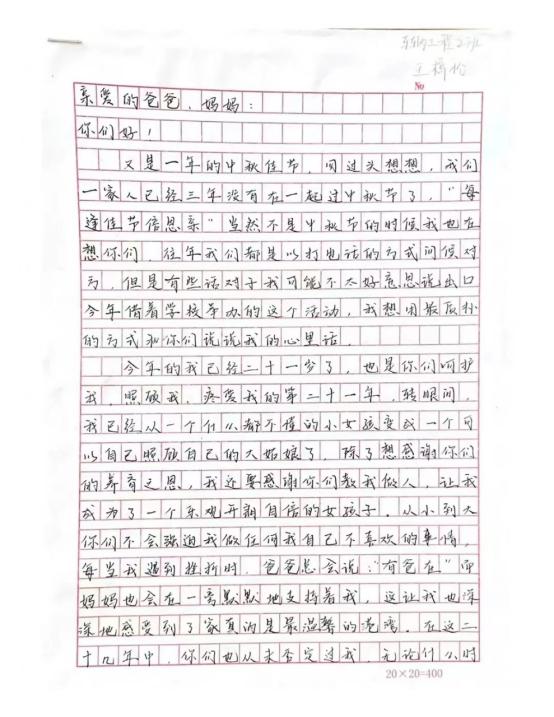 车辆工程2班
王
No
亲爱的爸爸、妈妈:
你们好!
又是一年的中秋佳节,回过头想想,我们
一家人已经三年没有在一起过中秋节了,“每
逢佳节倍思亲”当然不是中秋节的时候我也在
想你们,往年我们都是以打电话的方式问候对
方,但是有些话对于我可能不太好意思说出口
今年借着学校举办的这个活动,我想用最质朴
的方式和你们说说我的心里话.
今年的我已经二十一岁了,也是你们呵护
我,照顾我,疼爱我的第二十一年,转眼间,
我已经从一个什么都不懂的小女孩变成一个可
以自己照顾自己的大姑娘了,除了想感谢你们
的养育之恩,我还要感谢你们教我做人,让我
成为了一个乐观开朗自信的女孩子.从小到大
你们不会强迫我做任何我自己不喜欢的事情,
每当我遇到挫折时,爸爸总会说:“有爸在”而
妈妈也会在一旁默默地支持着我,这让我也深
深地感受到了家真的是最温馨的港湾.在这二
十几年中,你们也从未否定过我,无论什么时
20×20=400